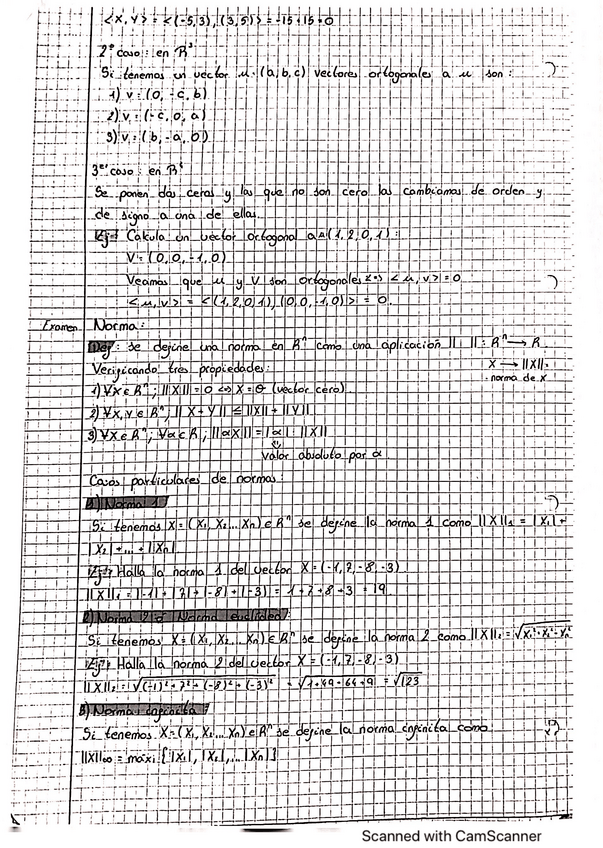 <X, Y> = <(-5,3), (3,5)> = -15+15=0
2º caso: en R³
Si tenemos un vector u=(a,b,c) vectores ortogonales a u son:
1) v=(0,-c,b)
2) v=(-c,0,a)
3) v=(b,-a,0)
3er caso: en R⁴
Se ponen dos ceros y las que no son cero las cambiamos de orden y
de signo a una de ellas.
Ej: Calcula un vector ortogonal a u=(1,2,0,1):
V=(0,0,-1,0)
Veamos que u y V son ortogonales <=> <u,v>=0
<u,v> = <(1,2,0,1), (0,0,-1,0)> = 0.
Examen. Norma:
Def: se define una norma en Rⁿ como una aplicación || ||: Rⁿ → R
X → ||X||
norma de x
Verificando tres propiedades:
1) ∀X∈Rⁿ; ||X||=0 <=> X=θ (vector cero)
2) ∀X,Y∈Rⁿ; ||X+Y|| ≤ ||X||+||Y||
3) ∀X∈Rⁿ; ∀α∈R; ||αX|| = |α|·||X||
valor absoluto por α
Casos particulares de normas:
1) Norma 1
Si tenemos X=(X₁, X₂... Xn)∈Rⁿ se define la norma 1 como ||X||₁ = |X₁|+
|X₂|+...+||Xn|
Ej: Halla la norma 1 del vector X=(-1,7,-8,-3)
||X||₁ = |-1|+|7|+|-8|+|-3| = 1+7+8+3 = 19
2) Norma 2 ó Norma euclídea:
Si tenemos X=(X₁, X₂... Xn)∈Rⁿ se define la norma 2 como ||X||₂ = √X₁²+X₂²...Xn²
Ej: Halla la norma 2 del vector X=(-1,7,-8,-3)
||X||₂ = √(-1)²+7²+(-8)²+(-3)² = √1+49+64+9 = √123
3) Norma infinita:
Si tenemos X=(X₁, X₂... Xn)∈Rⁿ se define la norma infinita como
||X||∞ = máxi {|X₁|, |X₂|,...|Xn|}
Scanned with CamScanner